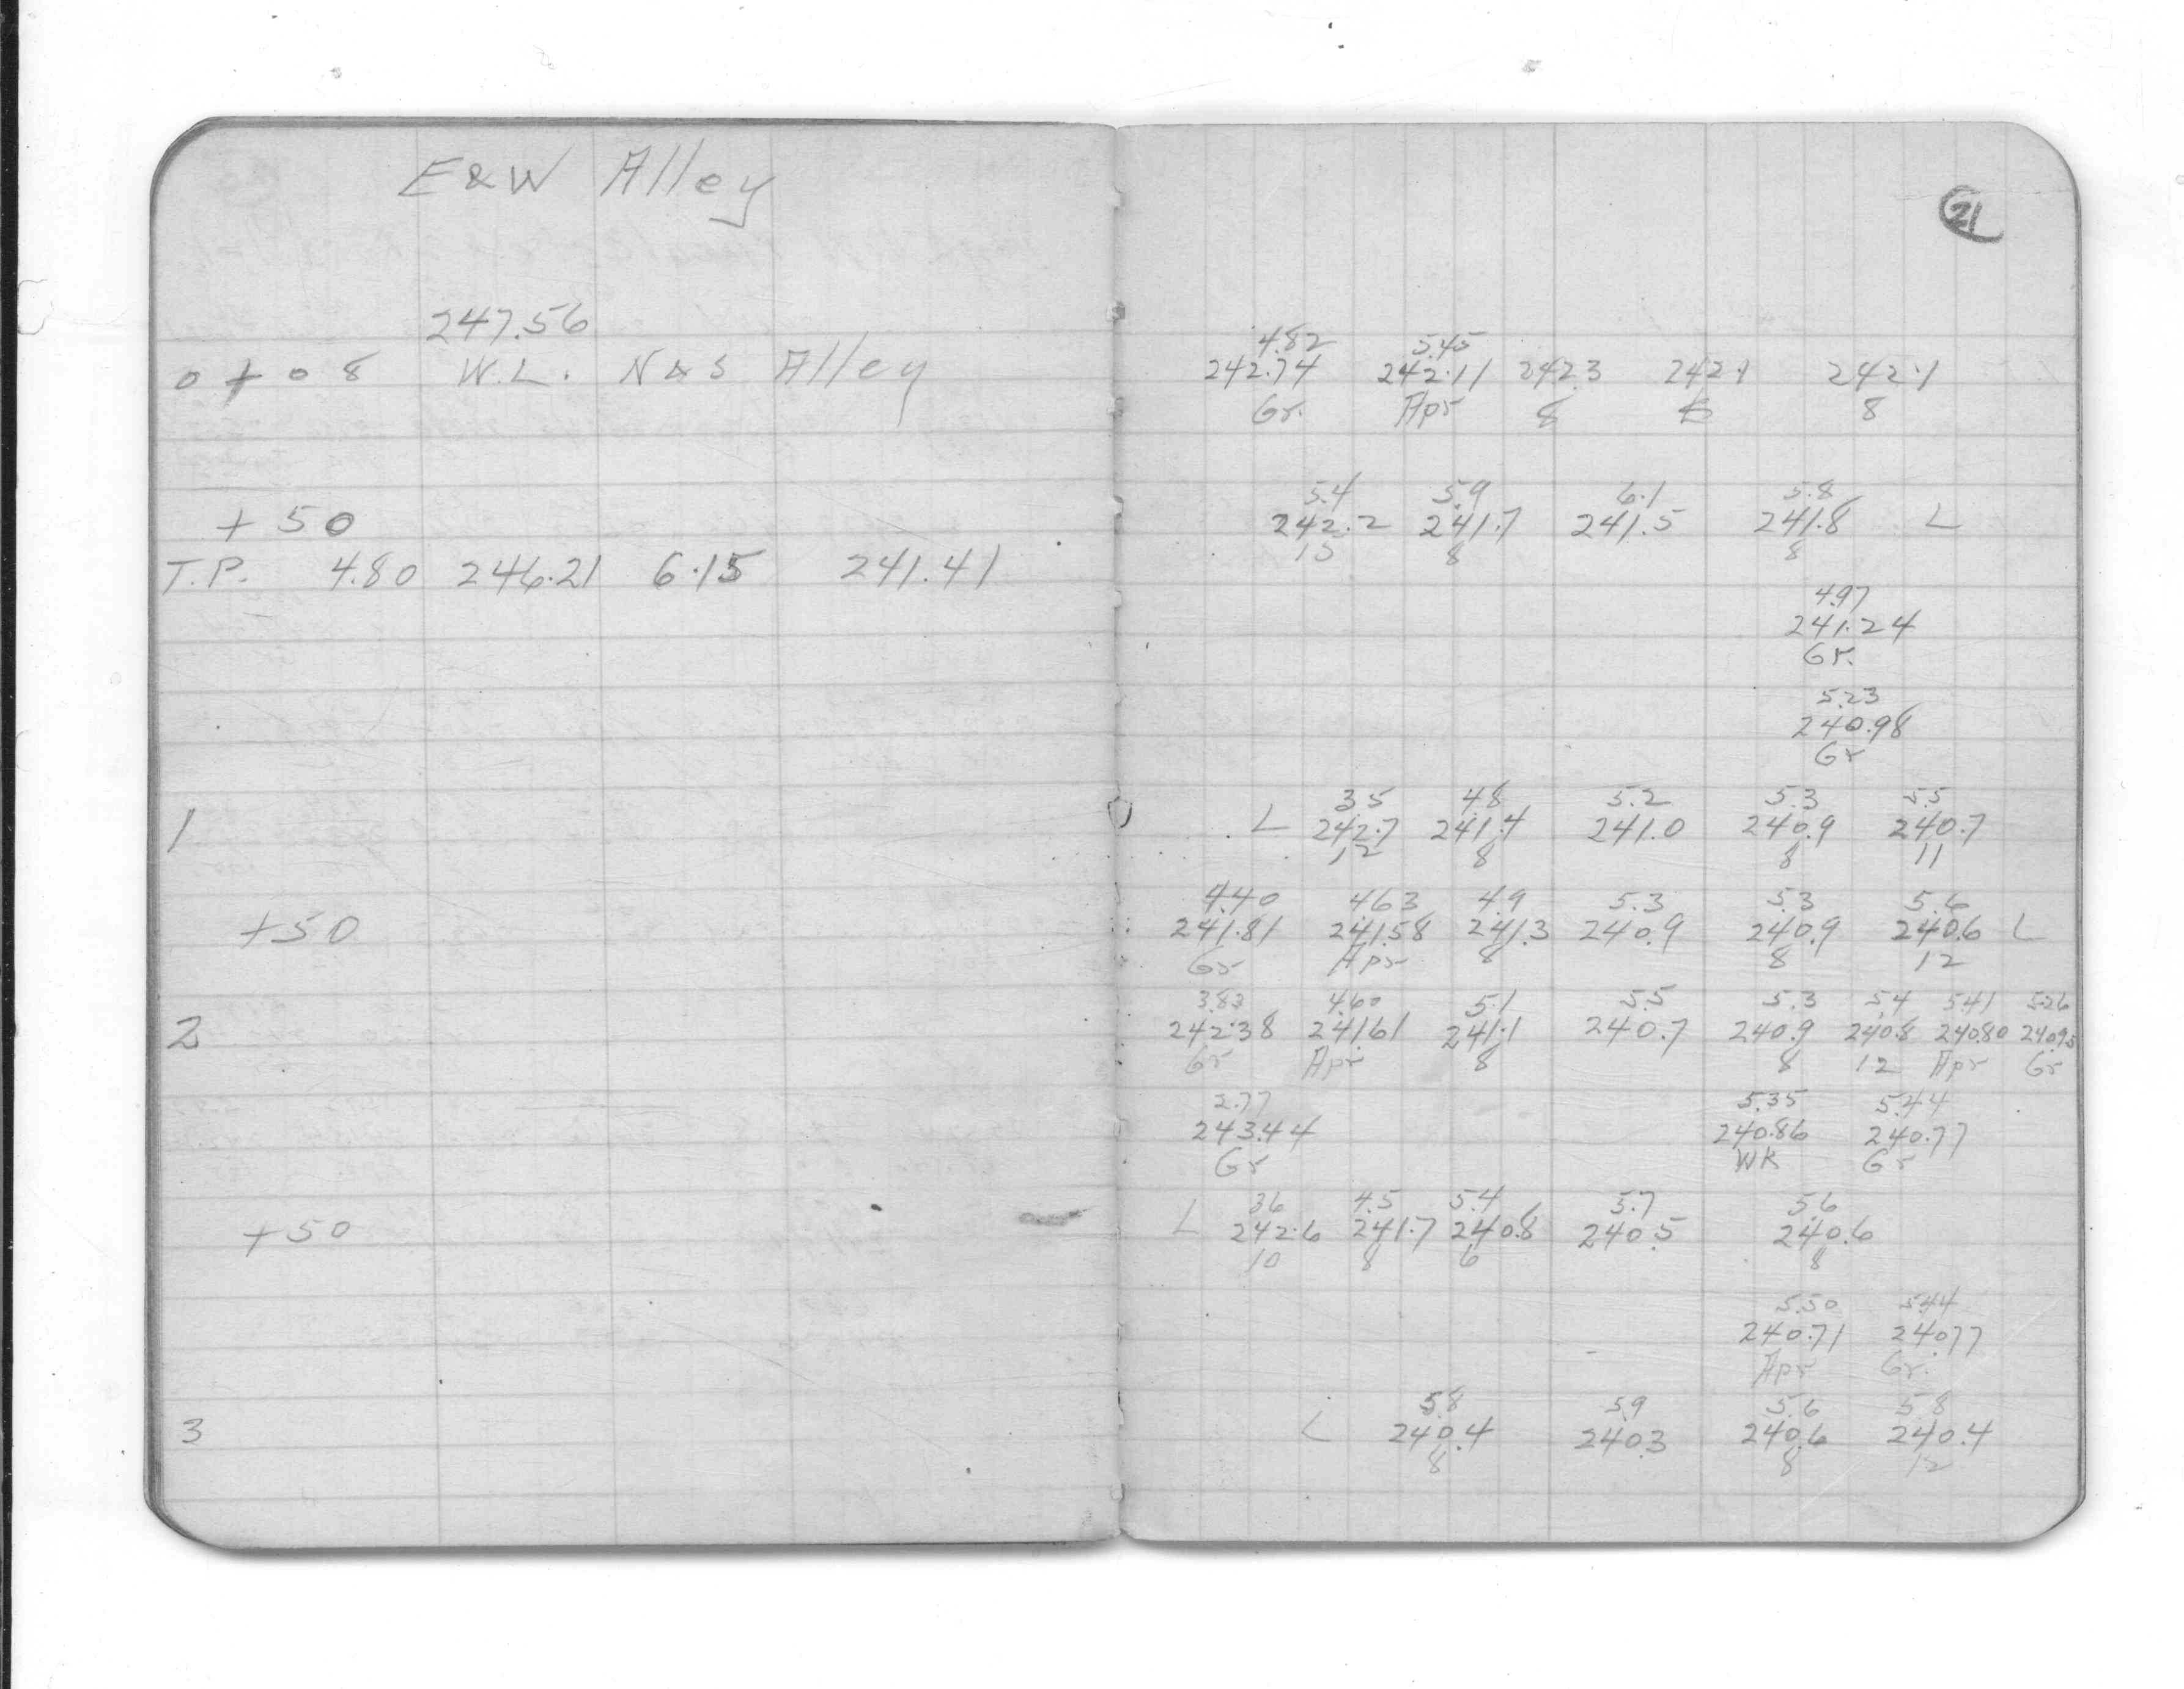 E&W Alley
247.56
0+08 W.L. N&S Alley
+50
T.P. 4.80 246.21 6.15 241.41
1
+50
2
+50
3
21
4.82 5.45
242.74 242.11 242.3 242.1 242.1
Gr. Apr 8 8
5.4 5.9 6.1 5.8
242.2 241.7 241.5 241.8 L
15 8 8
4.97
241.24
Gr.
5.23
240.98
Gr
3.5 4.8 5.2 5.3 5.5
L 242.7 241.4 241.0 240.9 240.7
12 8 8 11
4.40 4.63 4.9 5.3 5.3 5.6
241.81 241.58 241.3 240.9 240.9 240.6 L
Gr Apr 8 8 12
3.83 4.60 5.1 5.5 5.3 5.4 5.41 5.26
242.38 241.61 241.1 240.7 240.9 240.8 240.80 240.95
Gr Apr 8 8 12 Apr Gr
2.77 5.35 5.44
243.44 240.86 240.77
Gr WK Gr
3.6 4.5 5.4 5.7 5.6
L 242.6 241.7 240.8 240.5 240.6
10 8 6 8
5.50 5.44
240.71 240.77
Apr Gr.
5.8 5.9 5.6 5.8
L 240.4 240.3 240.6 240.4
8 8 12